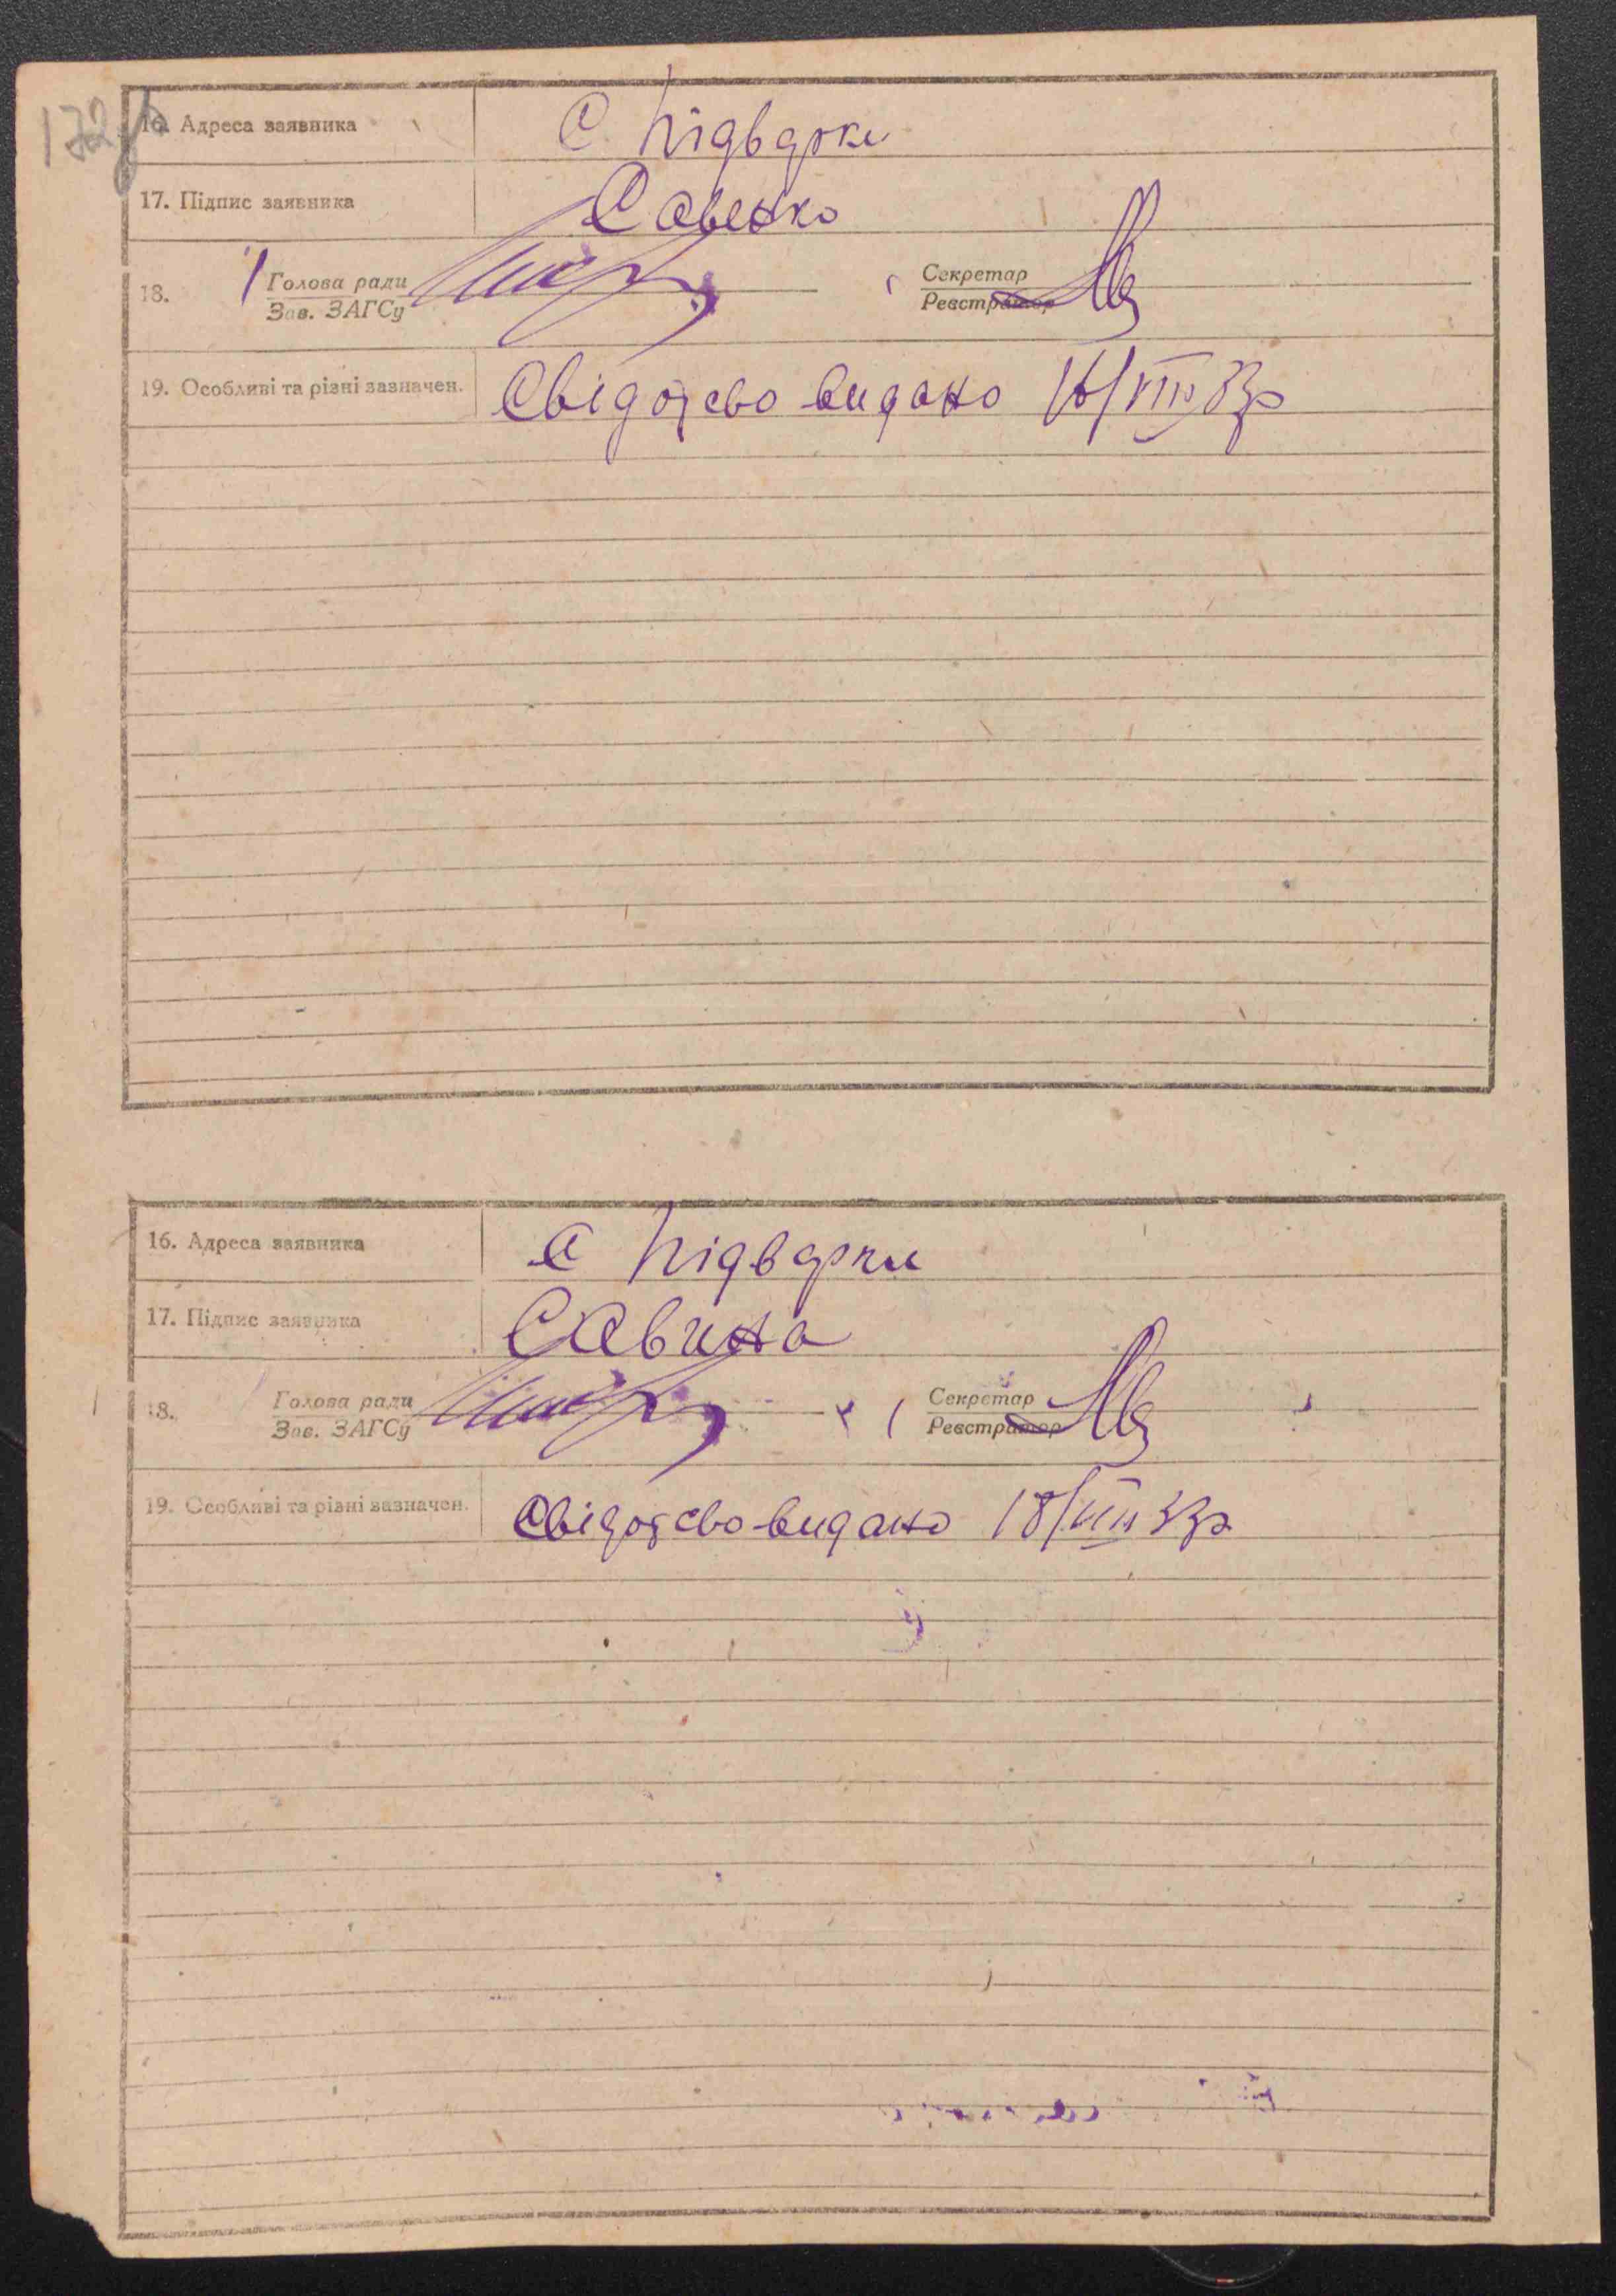 172
16. Адреса заявника С Підварки
17. Підпис заявника Савенко
18. Голова ради Секретар
Зав. ЗАГСу Реєстратор
19. Особливі та різні зазначен. Свідоцво видано 16/VIII 33р
16. Адреса заявника С Підварки
17. Підпис заявника Савина
18. Голова ради Секретар
Зав. ЗАГСу Реєстратор
19. Особливі та різні зазначен. Свідоцво видано 18/VIII 33р